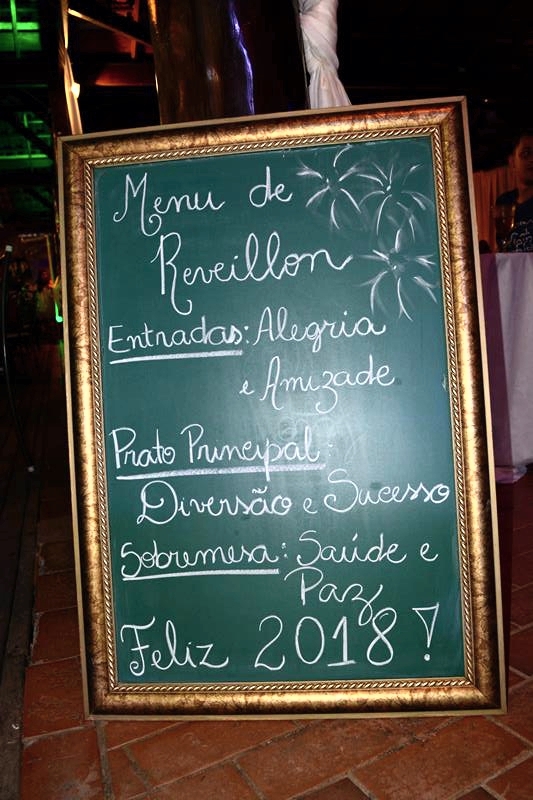 Menu de
Reveillon
Entradas: Alegria
e Amizade
Prato Principal:
Diversão e Sucesso
Sobremesa: Saúde e
Paz
Feliz 2018!